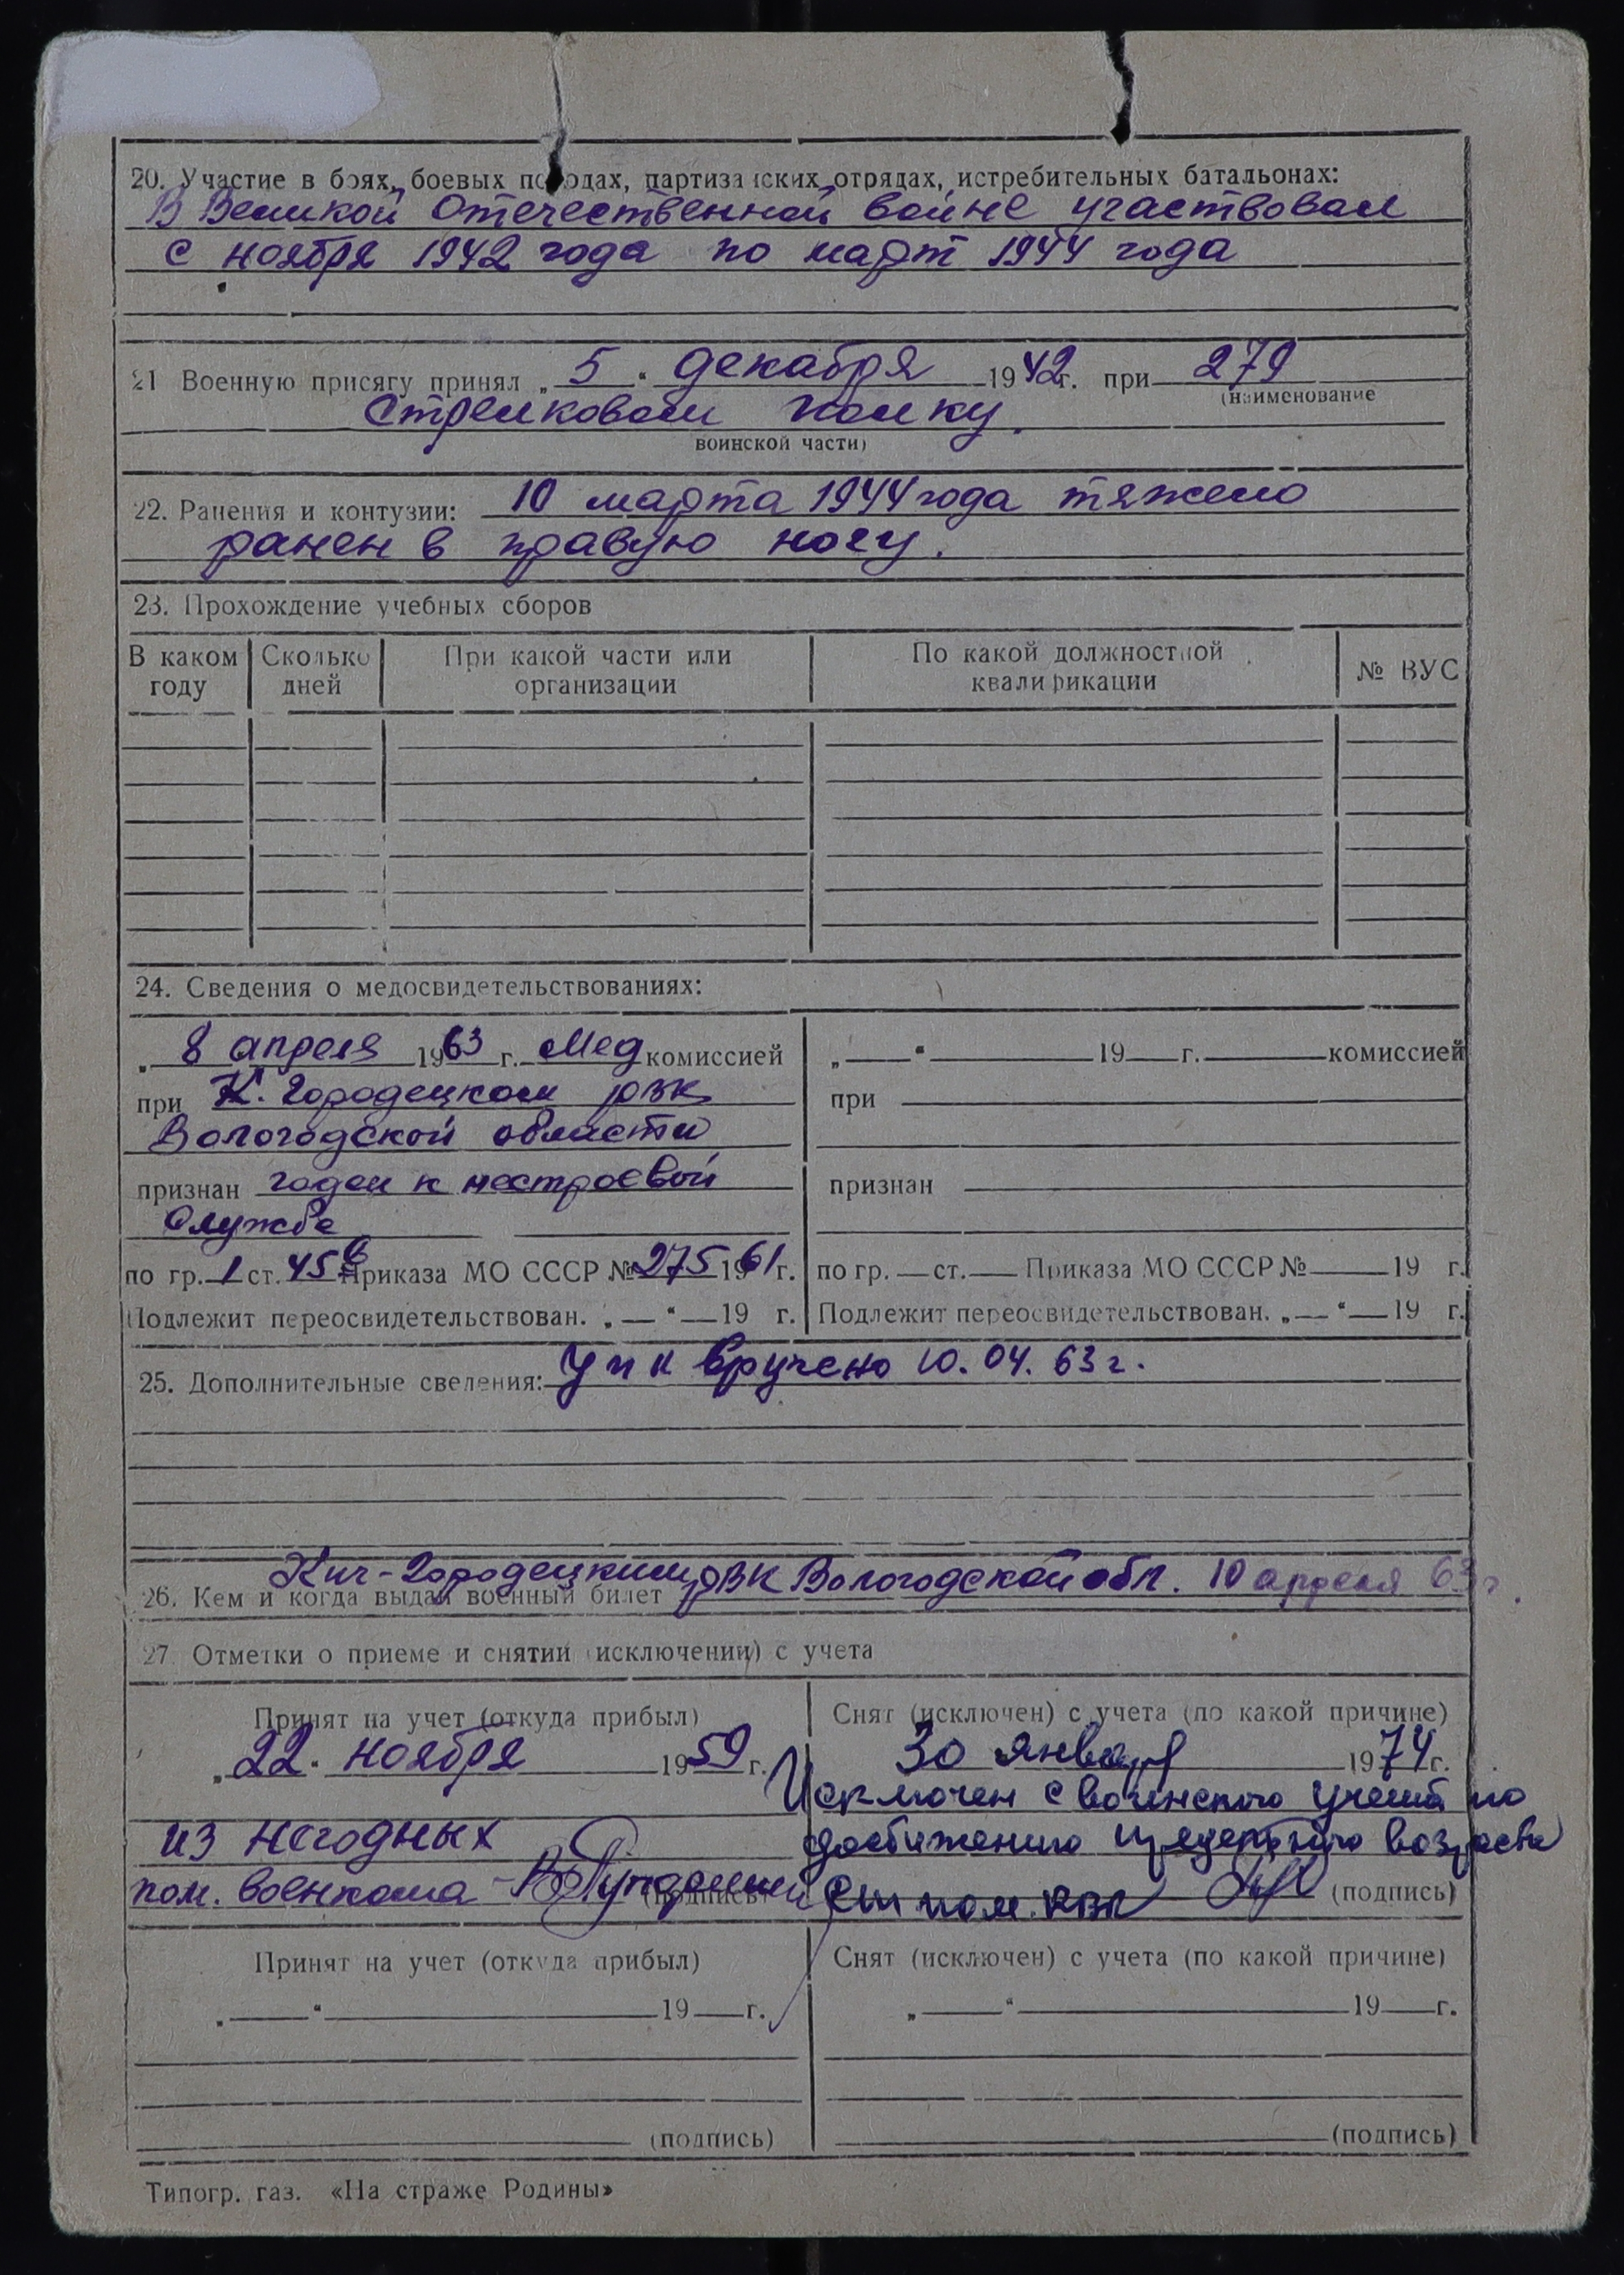 20. Участие в боях, боевых походах, партизанских отрядах, истребительных батальонах:
В Великой Отечественной войне участвовал
с ноября 1942 года по март 1944 года
21 Военную присягу принял „ 5 “ декабря 1942 г. при 279
(наименование
стрелковом полку.
воинской части)
22. Ранения и контузии: 10 марта 1944 года тяжело
ранен в правую ногу.
23. Прохождение учебных сборов
В каком году Сколько дней При какой части или организации По какой должностной квалификации № ВУС
24. Сведения о медосвидетельствованиях:
„ 8 апреля 1963 г. Мед комиссией
при К. Городецком рвк
Вологодской области
признан годен к нестроевой
службе
по гр. 1 ст. 45в Приказа МО СССР № 275 1961 г.
Подлежит переосвидетельствован. „ — “ — 19 г.
„ — “ — 19 — г. — комиссией
при
признан
по гр. — ст. — Приказа МО СССР № — 19 г.
Подлежит переосвидетельствован. „ — “ — 19 г.
25. Дополнительные сведения: вручено 10.04.63 г.
Кич-Городецким рвк Вологодской обл. 10 апреля 63 г.
26. Кем и когда выдан военный билет
27. Отметки о приеме и снятии (исключении) с учета
Принят на учет (откуда прибыл)
„ 22 “ ноября 1959 г.
из негодных
пом. военкома (подпись)
Снят (исключен) с учета (по какой причине)
30 января 1974 г.
Исключен с воинского учета по
достижению предельного возраста
Ст пом. рвк (подпись)
Принят на учет (откуда прибыл)
„ — “ — 19 — г.
(подпись)
Снят (исключен) с учета (по какой причине)
„ — “ — 19 — г.
(подпись)
Типогр. газ. «На страже Родины»